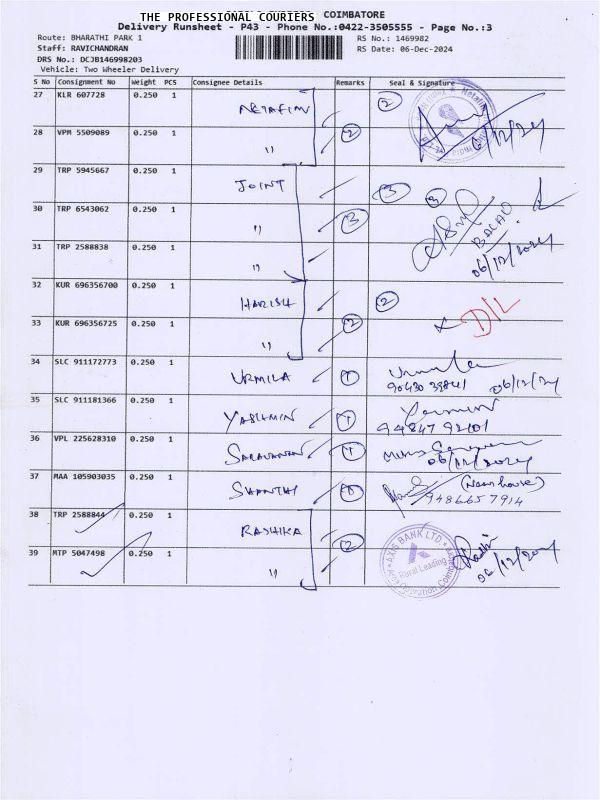 THE PROFESSIONAL COURIERS COIMBATORE
Delivery Runsheet - P43 - Phone No.:0422-3505555 - Page No.:3
Route: BHARATHI PARK 1 RS No.: 1469982
Staff: RAVICHANDRAN RS Date: 06-Dec-2024
DRS No.: DCJB146998203
Vehicle: Two Wheeler Delivery
S No Consignment No Weight PCS Consignee Details Remarks Seal & Signature
27 KLR 607728 0.250 1 NETAFIM 2
28 VPM 5509089 0.250 1 " 2 6/12/24
29 TRP 5945667 0.250 1 JOINT 3 3
30 TRP 6543062 0.250 1 " 3
31 TRP 2588838 0.250 1 " 06/12/2024
32 KUR 696356700 0.250 1 HARISH 2
33 KUR 696356725 0.250 1 " 2 D/L
34 SLC 911172773 0.250 1 URMILA 1 06/12/24
35 SLC 911181366 0.250 1 YASHMIN 1 94847 92101
36 VPL 225628310 0.250 1 SARAVANAN 1 06/12/2024
37 MAA 105903035 0.250 1 SHANTHI 1 (Near house)
9486657914
38 TRP 2588844 0.250 1 RASHIKA 2 AXIS BANK LTD.
39 MTP 5047498 0.250 1 " Rural Leading 06/12/2024